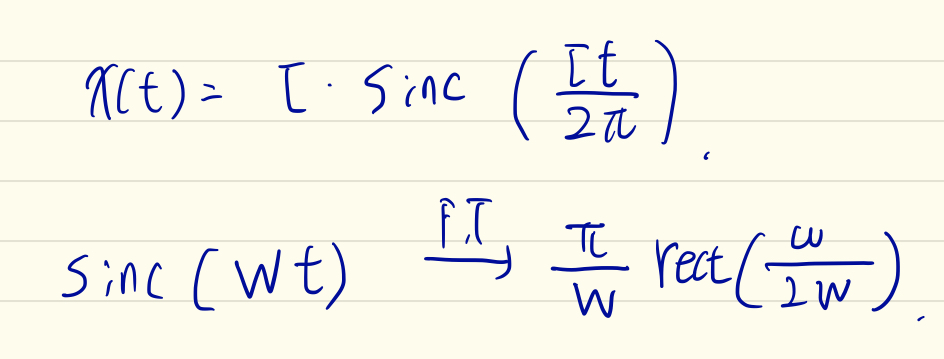 x(t) = τ · sinc (τt/2π).
sinc (Wt) F.T→ π/W rect(ω/2W).